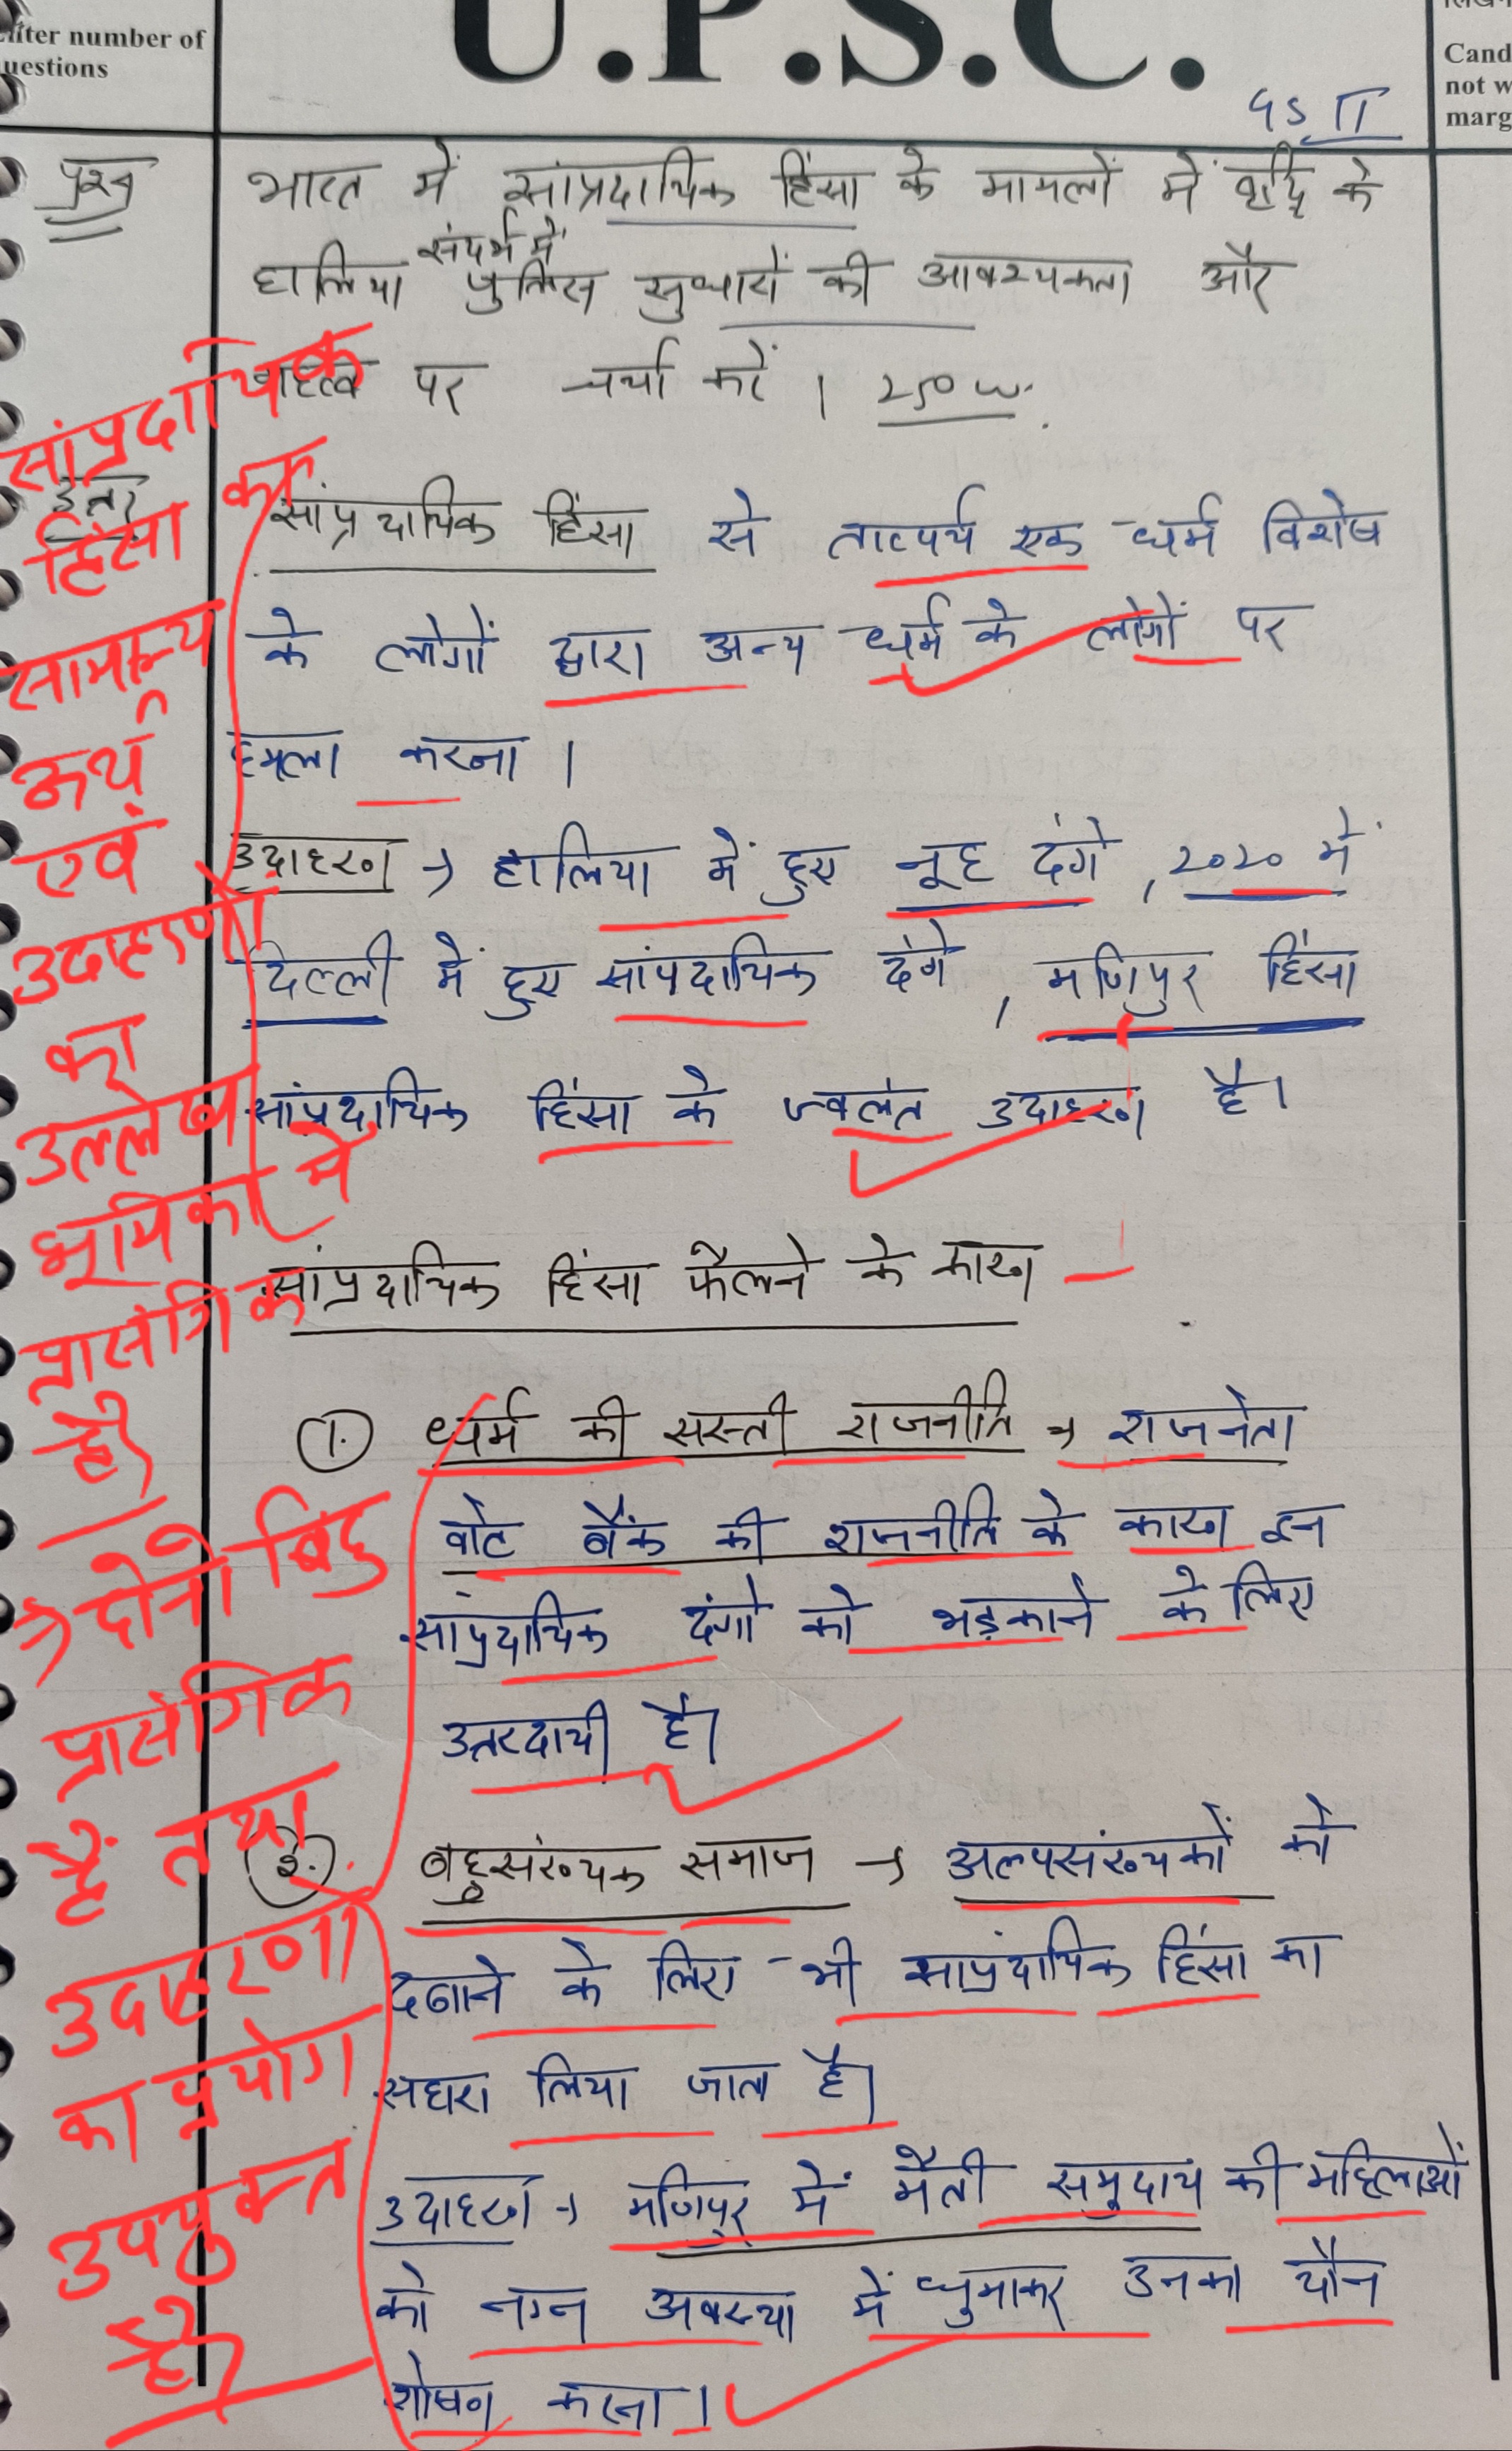 U.P.S.C.
number of
uestions
Cand
not w
marg
GS II
प्रश्न
भारत में सांप्रदायिक हिंसा के मामलों में वृद्धि के
हालिया संदर्भ में पुलिस सुधारों की आवश्यकता और
महत्व पर चर्चा करें । 250 w.
उत्तर
सांप्रदायिक हिंसा से तात्पर्य एक धर्म विशेष
के लोगों द्वारा अन्य धर्म के लोगों पर
हमला करना ।
उदाहरण → हालिया में हुए नूह दंगे, 2020 में
दिल्ली में हुए सांप्रदायिक दंगे, मणिपुर हिंसा
सांप्रदायिक हिंसा के ज्वलंत उदाहरण है।
सांप्रदायिक हिंसा फैलने के कारण
1. धर्म की सस्ती राजनीति → राजनेता
वोट बैंक की राजनीति के कारण इन
सांप्रदायिक दंगों को भड़काने के लिए
उत्तरदायी है।
2. बहुसंख्यक समाज → अल्पसंख्यकों को
दबाने के लिए भी साप्रंदायिक हिंसा का
सहारा लिया जाता है।
उदाहरण → मणिपुर में मैती समुदाय की महिलाओं
को नग्न अवस्था में घुमाकर उनका यौन
शोषण करना।
सांप्रदायिक
हिंसा का
सामान्य
अर्थ
एवं
उदाहरणों
का
उल्लेख
भूमिका में
प्रासंगिक
है।
→ दोनों बिंदु
प्रासंगिक
हैं तथा
उदाहरणों
का प्रयोग
उपयुक्त
है।